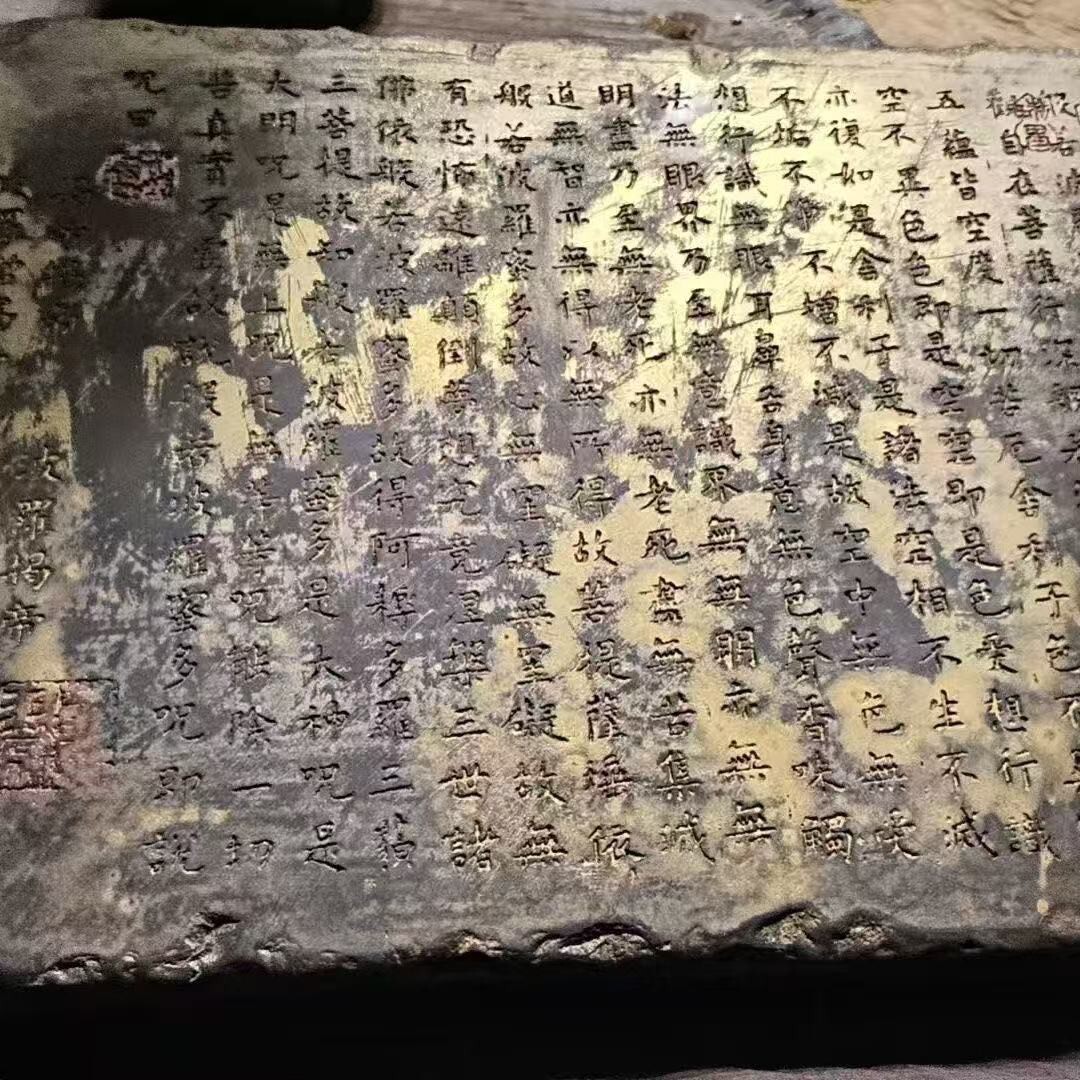 般若波羅
觀自在菩薩行深般若
五蘊皆空度一切苦厄舍利子色不異
空不異色色即是空空即是色受想行識
亦復如是舍利子是諸法空相不生不滅
不垢不淨不增不減是故空中無色無受
想行識無眼耳鼻舌身意無色聲香味觸
法無眼界乃至無意識界無無明亦無無
明盡乃至無老死亦無老死盡無苦集滅
道無智亦無得以無所得故菩提薩埵依
般若波羅蜜多故心無罣礙無罣礙故無
有恐怖遠離顛倒夢想究竟涅槃三世諸
佛依般若波羅蜜多故得阿耨多羅三藐
三菩提故知般若波羅蜜多是大神呪是
大明呪是無上呪是無等等呪能除一切
苦真實不虛故說般若波羅蜜多呪即說
呪曰
波羅揭帝